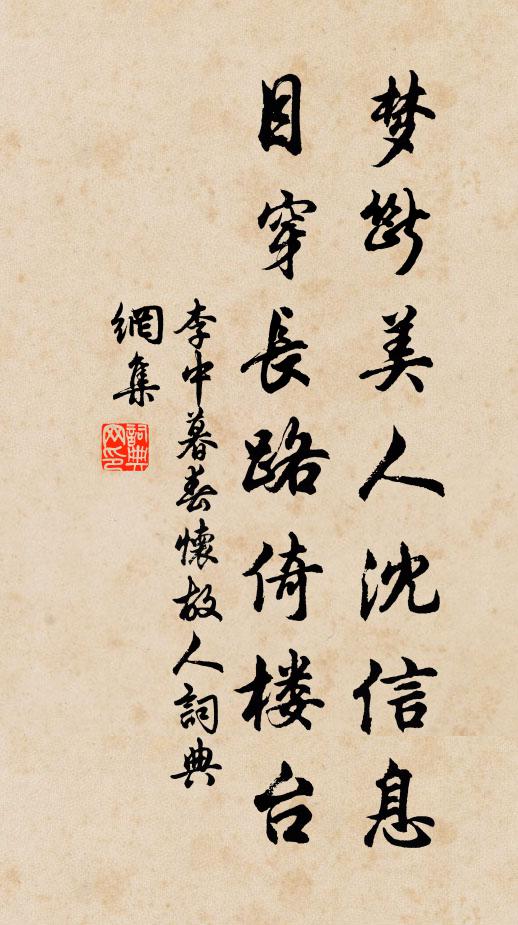 梦断美人沈信息
目穿長路倚楼台
李中暮春懷故人詞典
網集
詞典网印